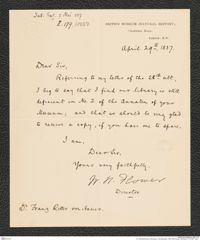 BRITISH MUSEUM (NATURAL HISTORY),
CROMWELL ROAD,
LONDON: S.W.
April 29th, 1887.
Dear Sir,
Referring to my letter of the 28th ult,
I beg to say that I find our library is still
deficient in No 2 of the Annalen of your
Museum, and that we should be very glad
to receive a copy, if you have one to spare.
I am,
Dear Sir,
Yours very faithfully,
W. H. Flower
Director
Dr Franz Ritter von Hauer.